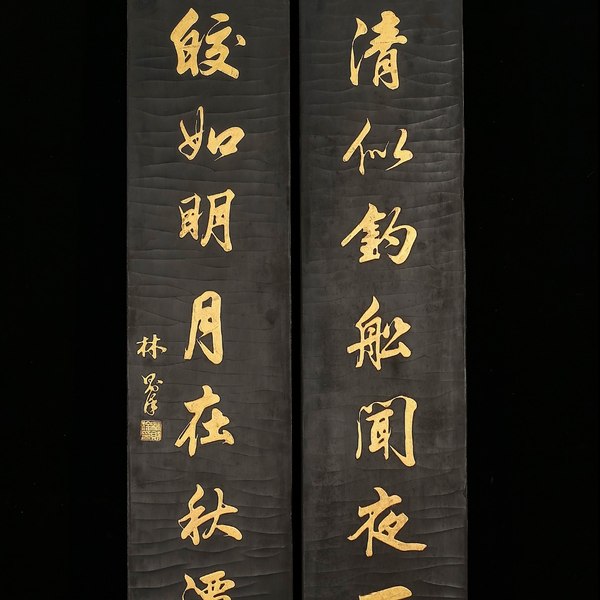 清似釣船聞夜
皎如明月在秋
林